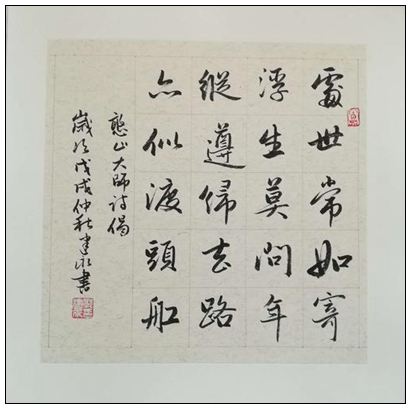 處世常如寄
浮生莫問年
縱遵歸去路
亦似渡頭船
憨山大師詩偈
歲次戊戌仲秋建書